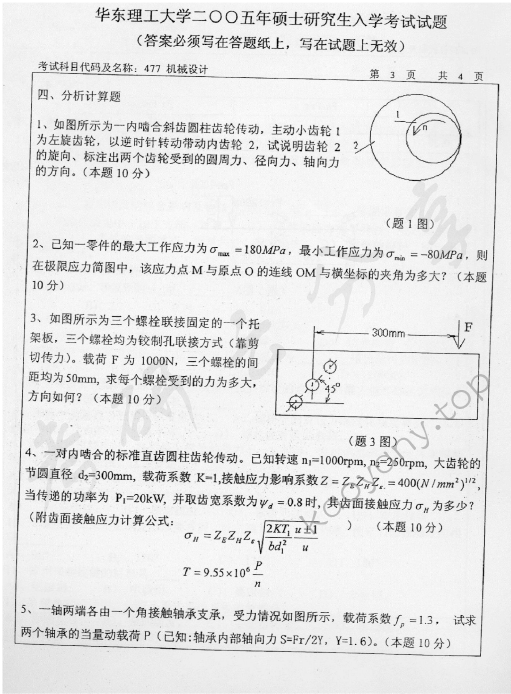 华东理工大学二〇〇五年硕士研究生入学考试试题
(答案必须写在答题纸上，写在试题上无效)
考试科目代码及名称：477 机械设计
第 3 页 共 4 页
四、分析计算题
1、如图所示为一内啮合斜齿圆柱齿轮传动，主动小齿轮 1
为左旋齿轮，以逆时针转动带动内齿轮 2，试说明齿轮 2
的旋向、标注出两个齿轮受到的圆周力、径向力、轴向力
的方向。（本题 10 分）
1
n
2
（题 1 图）
2、已知一零件的最大工作应力为 σmax =180MPa，最小工作应力为 σmin =-80MPa，则
在极限应力简图中，该应力点 M 与原点 O 的连线 OM 与横坐标的夹角为多大？（本题
10 分）
3、如图所示为三个螺栓联接固定的一个托
架板，三个螺栓均为铰制孔联接方式（靠剪
切传力）。载荷 F 为 1000N，三个螺栓的间
距均为50mm，求每个螺栓受到的力为多大，
方向如何？（本题 10 分）
300mm
F
45°
（题 3 图）
4、一对内啮合的标准直齿圆柱齿轮传动。已知转速 n₁=1000rpm, n₂=250rpm，大齿轮的
节圆直径 d₂=300mm，载荷系数 K=1,接触应力影响系数 Z = Z_E Z_H Z_ε = 400(N/mm²)^1/2，
当传递的功率为 P₁=20kW，并取齿宽系数为 ψ_d = 0.8 时，其齿面接触应力 σ_H 为多少？
（附齿面接触应力计算公式： ） （本题 10 分）
σ_H = Z_E Z_H Z_ε √(2KT₁/bd₁² · (u±1)/u)
T = 9.55×10⁶ P/n
5、一轴两端各由一个角接触轴承支承，受力情况如图所示，载荷系数 f_p =1.3， 试求
两个轴承的当量动载荷 P（已知:轴承内部轴向力 S=Fr/2Y，Y=1.6）。（本题 10 分）
kaoyany.top